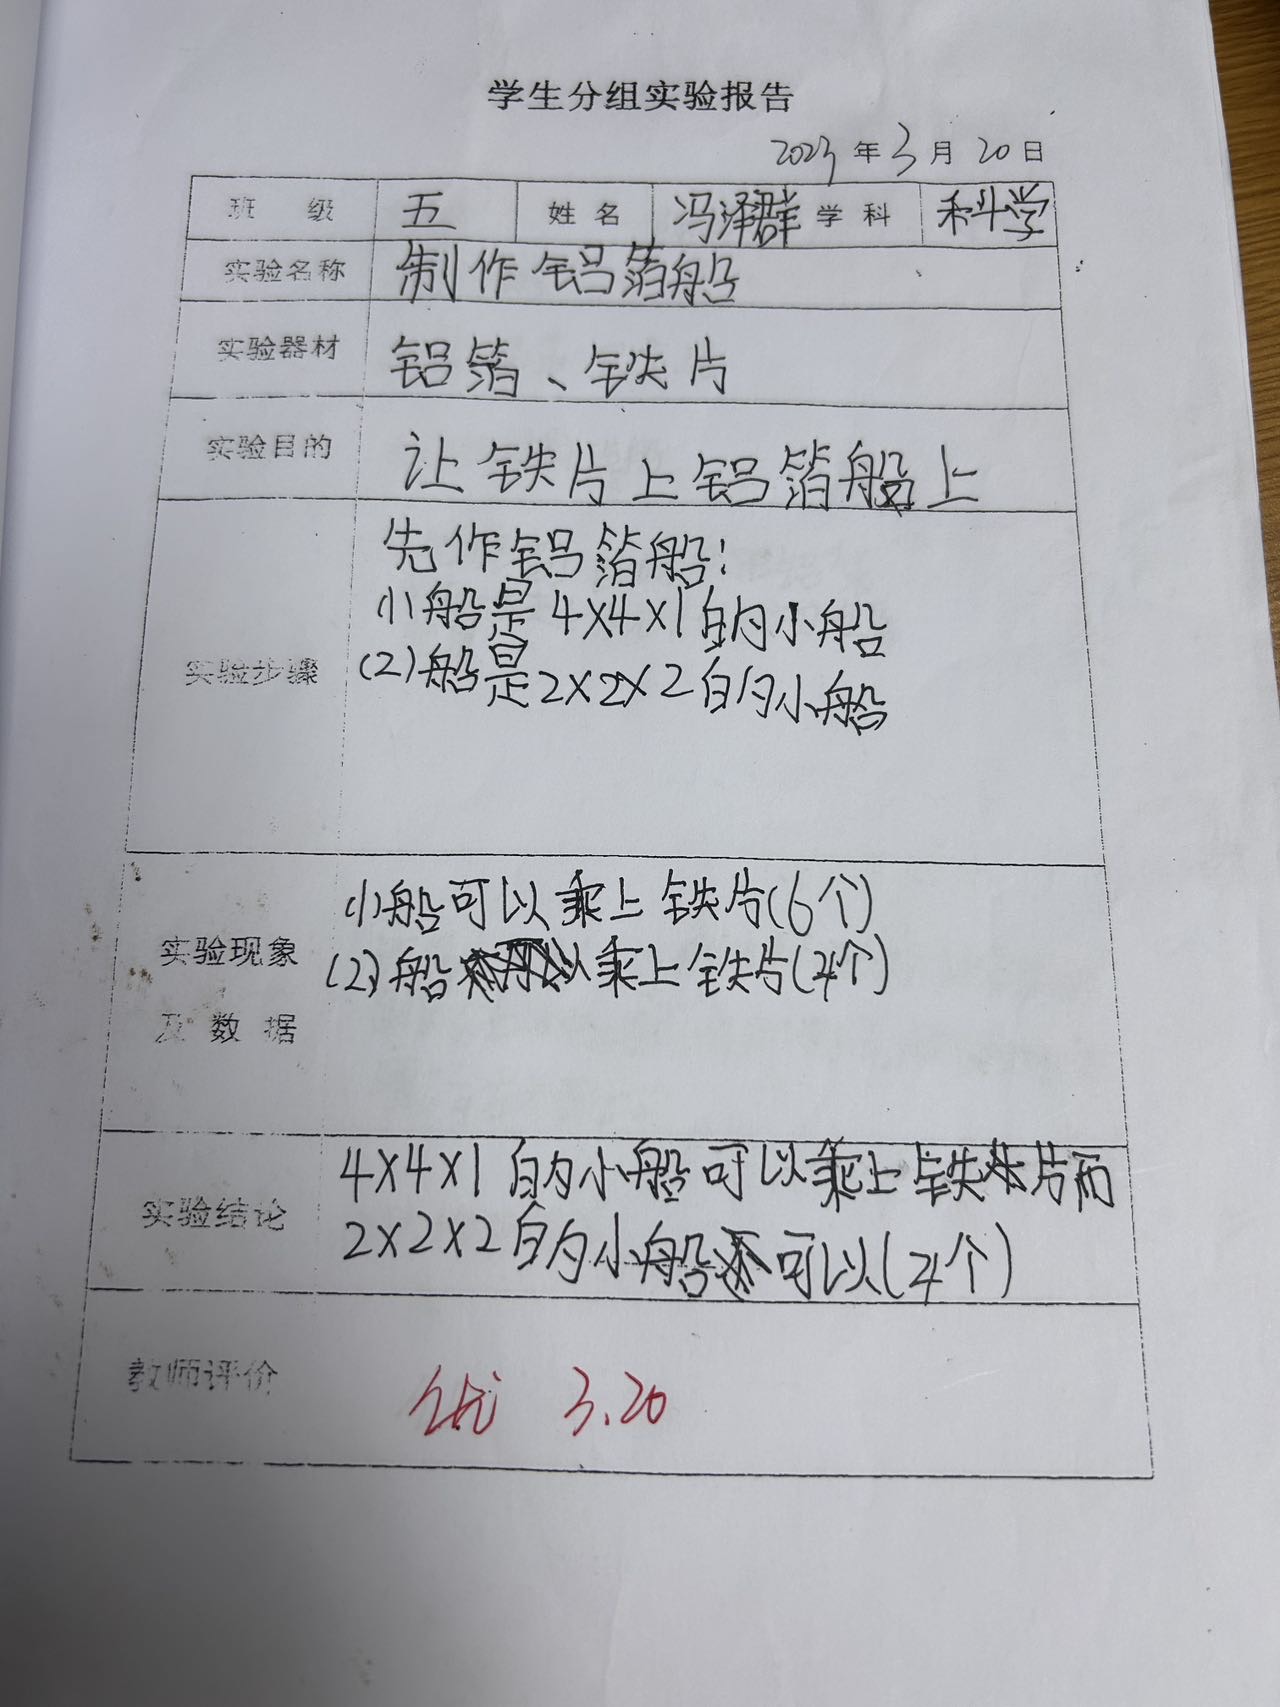 学生分组实验报告
2023年3月20日
班级 五 姓名 冯泽群 学科 科学
实验名称 制作铝箔船
实验器材 铝箔、铁片
实验目的 让铁片上铝箔船上
先作铝箔船:
(1)船是4×4×1的小船
实验步骤 (2)船是2×2×2的小船
(1)船可以乘上铁片(6个)
实验现象 (2)船以乘上铁片(4个)
及数据
4×4×1的小船可以乘上铁片而
实验结论 2×2×2的小船可以(4个)
教师评价 优 3.20